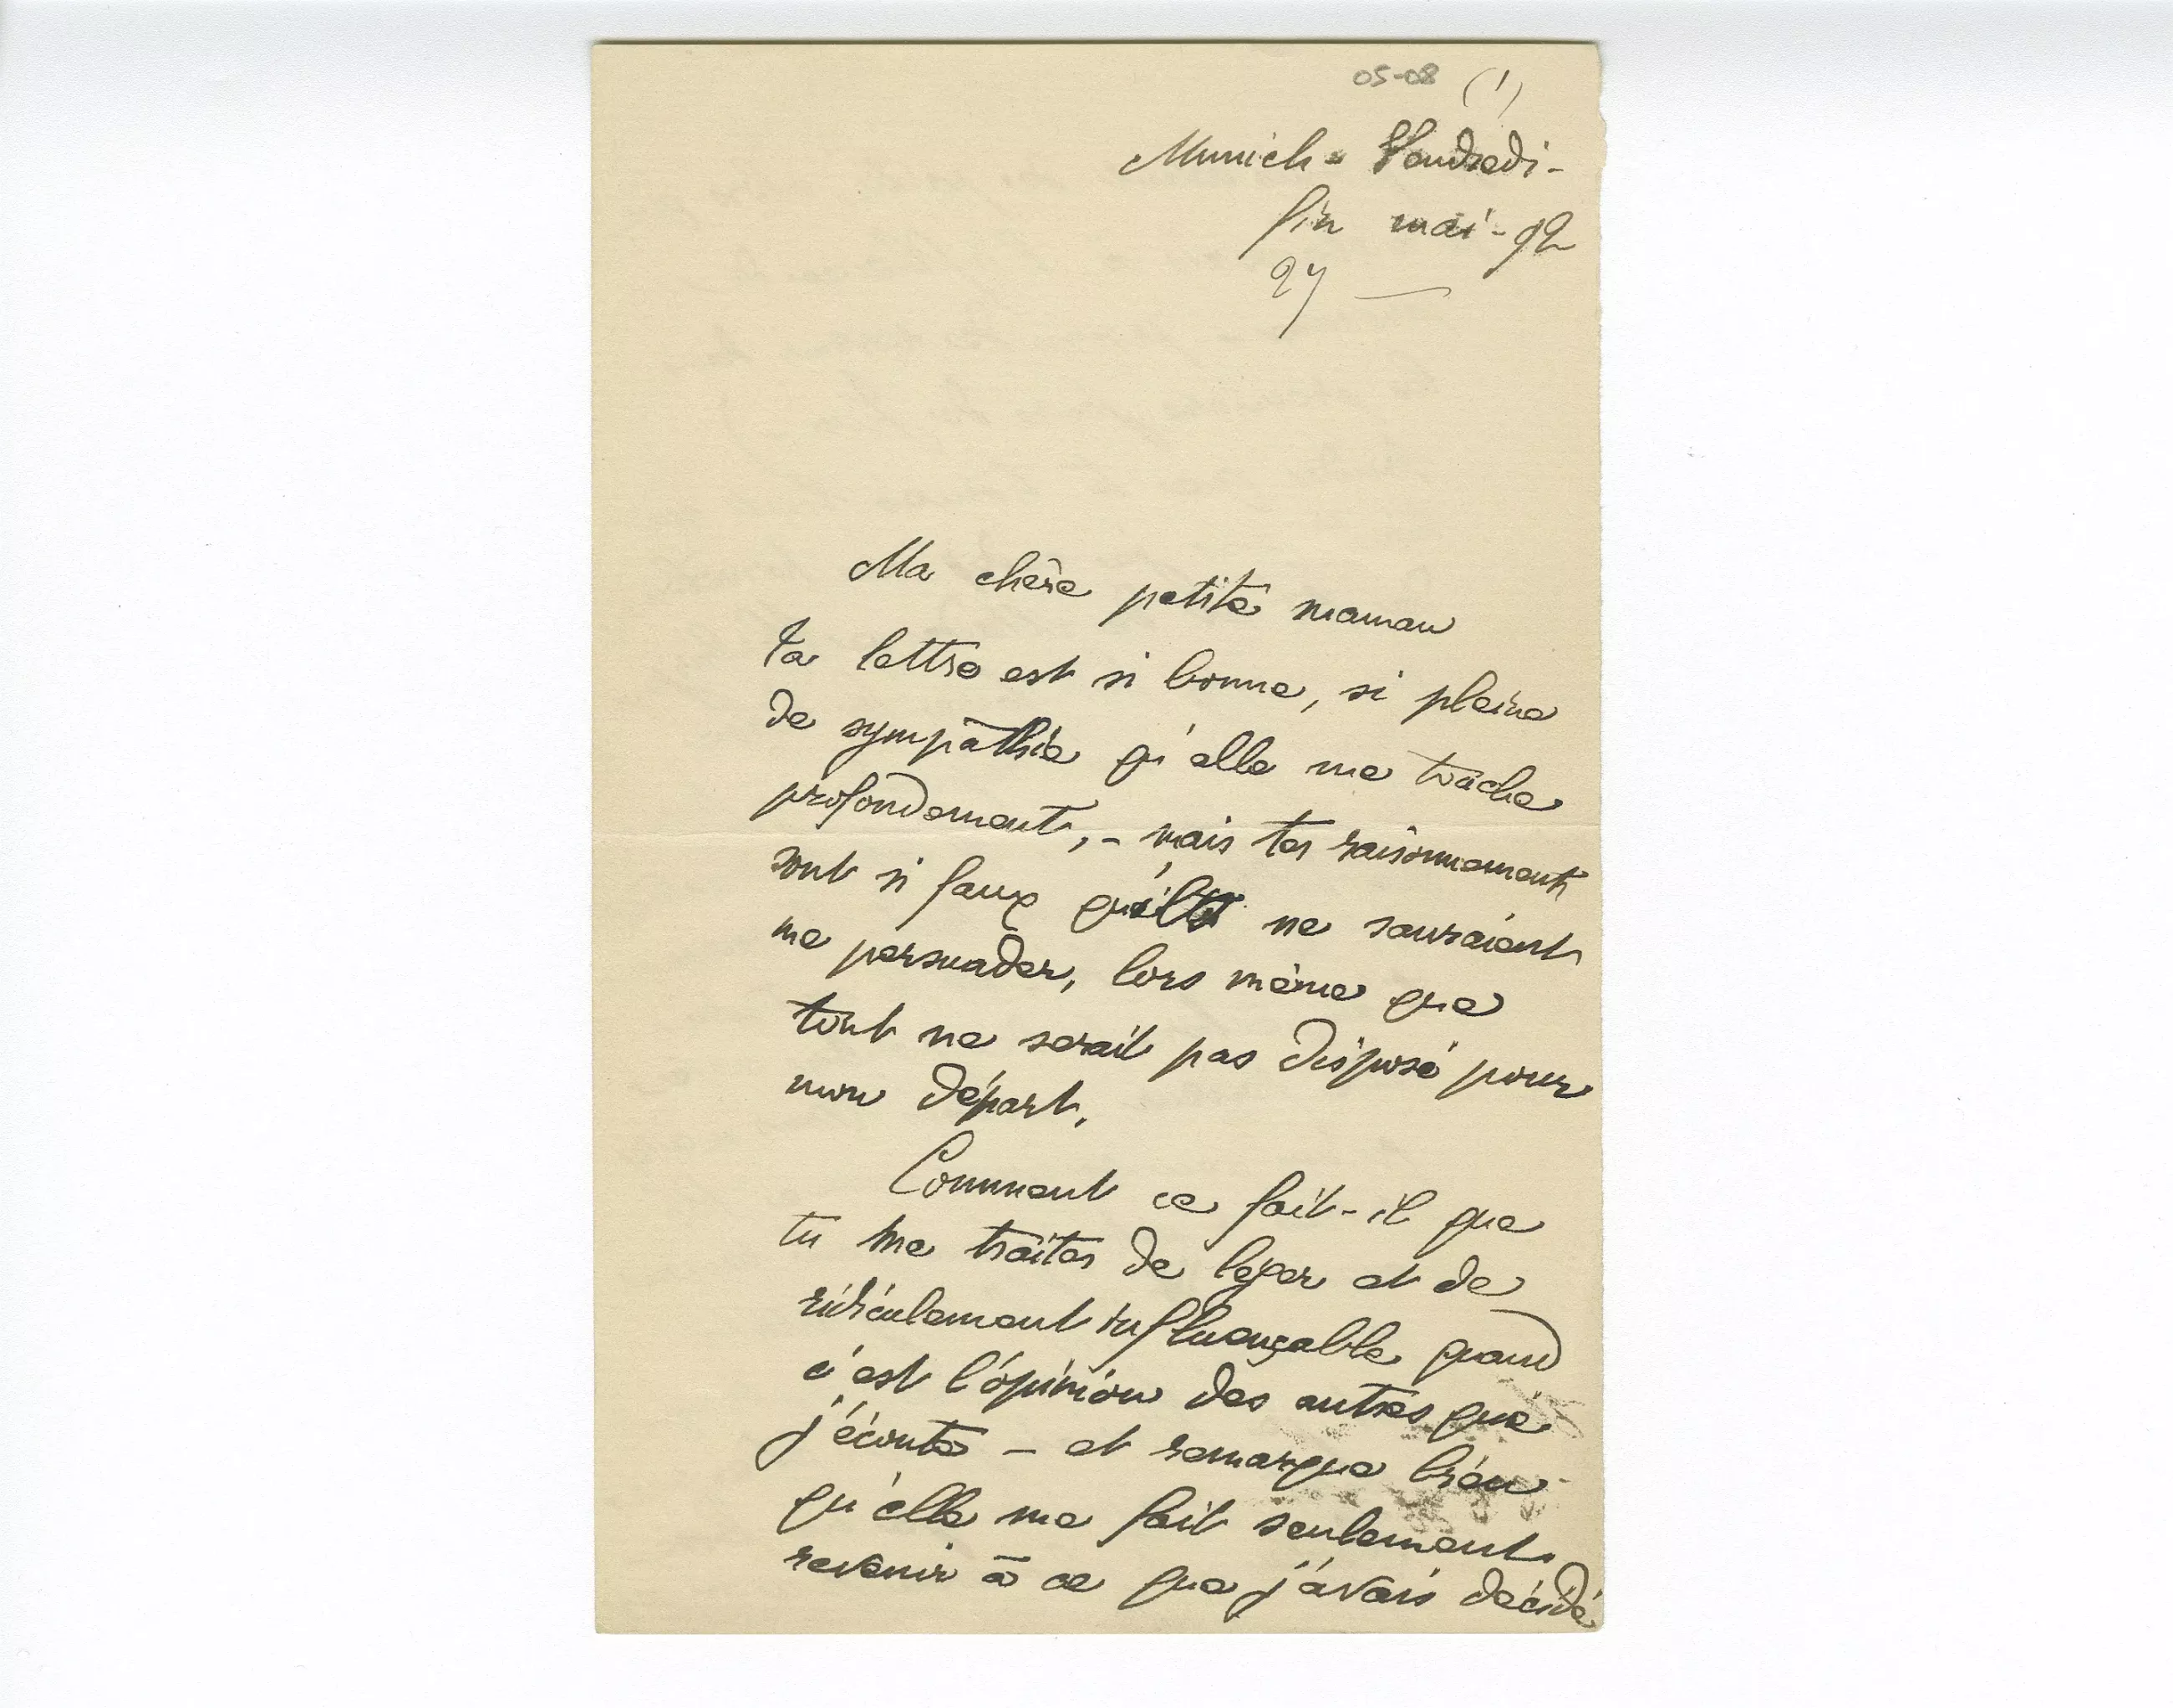 05-08 (1)
Munich - Vendredi -
fin mai - 92
27 —
Ma chère petite maman
Ta lettre est si bonne, si pleine
de sympathie qu'elle me touche
profondement, - mais tes raisonnements
sont si faux qu'ils ne sauraient
me persuader, lors même que
tout ne serait pas disposé pour
mon départ.
Comment ce fait-il que
tu me traites de leger et de
ridiculement influençable quand
c'est l'opinion des autres que
j'écoute - et remarque bien
qu'elle me fait seulement
revenir à ce que j'avais décidé